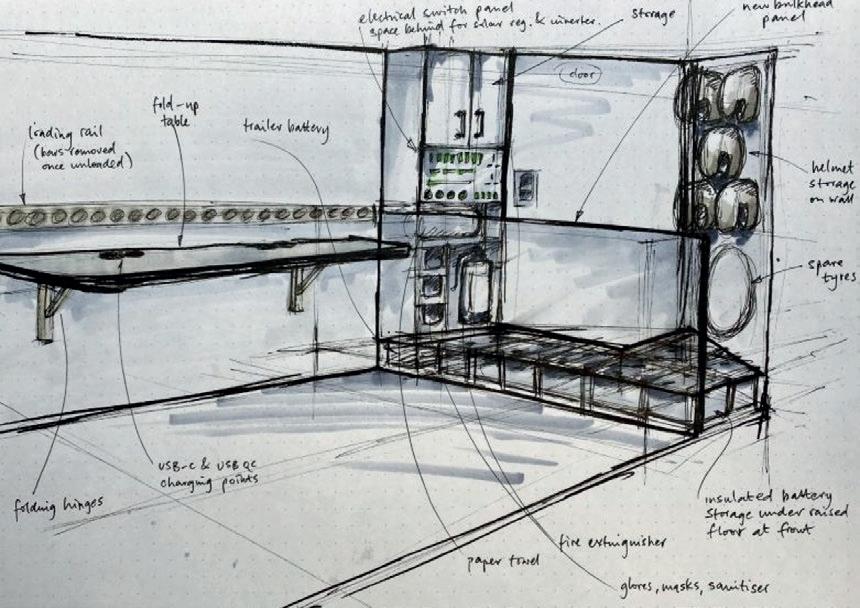 electrical switch panel
space behind for solar reg. & inverter.
storage
new bulkhead
panel
door
fold-up
table
loading rail
(bars removed
once unloaded)
trailer battery
helmet
storage
on wall
spare
tyres
USB-C & USB QC
charging points
folding hinges
insulated battery
storage under raised
floor at front
fire extinguisher
paper towel
gloves, masks, sanitiser